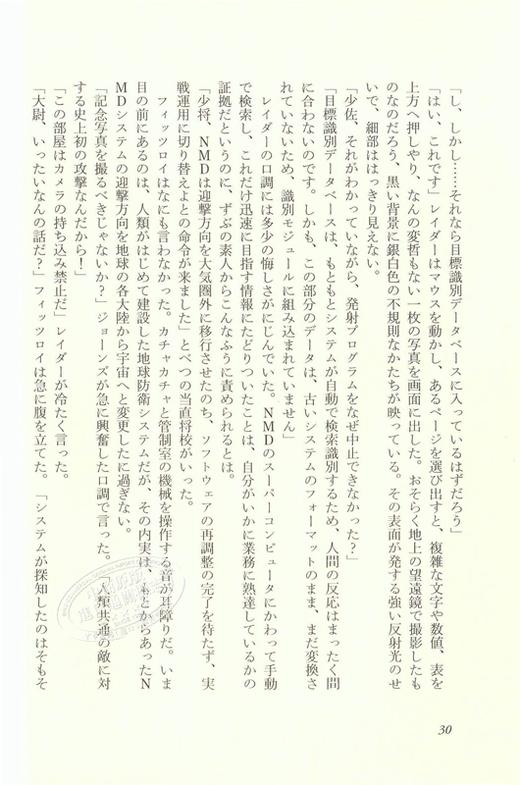 「し、しかし……それなら目標識別データベースに入っているはずだろう」
「はい、これです」レイダーはマウスを動かし、あるページを選び出すと、複雑な文字や数値、表を
上方へ押しやり、なんの変哲もない一枚の写真を画面に出した。おそらく地上の望遠鏡で撮影したも
のなのだろう、黒い背景に銀白色の不規則なかたちが映っている。その表面が発する強い反射光のせ
いで、細部ははっきり見えない。
「少佐、それがわかっていながら、発射プログラムをなぜ中止できなかった？」
「目標識別データベースは、もともとシステムが自動で検索識別するため、人間の反応はまったく間
に合わないのです。しかも、この部分のデータは、古いシステムのフォーマットのまま、まだ変換さ
れていないため、識別モジュールに組み込まれていません」
レイダーの口調には多少の悔しさがにじんでいた。NMDのスーパーコンピュータにかわって手動
で検索し、これだけ迅速に目指す情報にたどりついたことは、自分がいかに業務に熟達しているかの
証拠だというのに、ずぶの素人からこんなふうに責められるとは。
「少将、NMDは迎撃方向を大気圏外に移行させたのち、ソフトウェアの再調整の完了を待たず、実
戦運用に切り替えよとの命令が来ました」とべつの当直将校がいった。
フィッツロイはなにも言わなかった。カチャカチャと管制室の機械を操作する音が耳障りだ。いま
目の前にあるのは、人類がはじめて建設した地球防衛システムだが、その内実は、もとからあったN
MDシステムの迎撃方向を地球の各大陸から宇宙へと変更したに過ぎない。
「記念写真を撮るべきじゃないか？」ジョーンズが急に興奮した口調で言った。「人類共通の敵に対
する史上初の攻撃なんだから！」
「この部屋はカメラの持ち込み禁止だ」レイダーが冷たく言った。
「大尉、いったいなんの話だ？」フィッツロイは急に腹を立てた。「システムが探知したのはそもそ
30